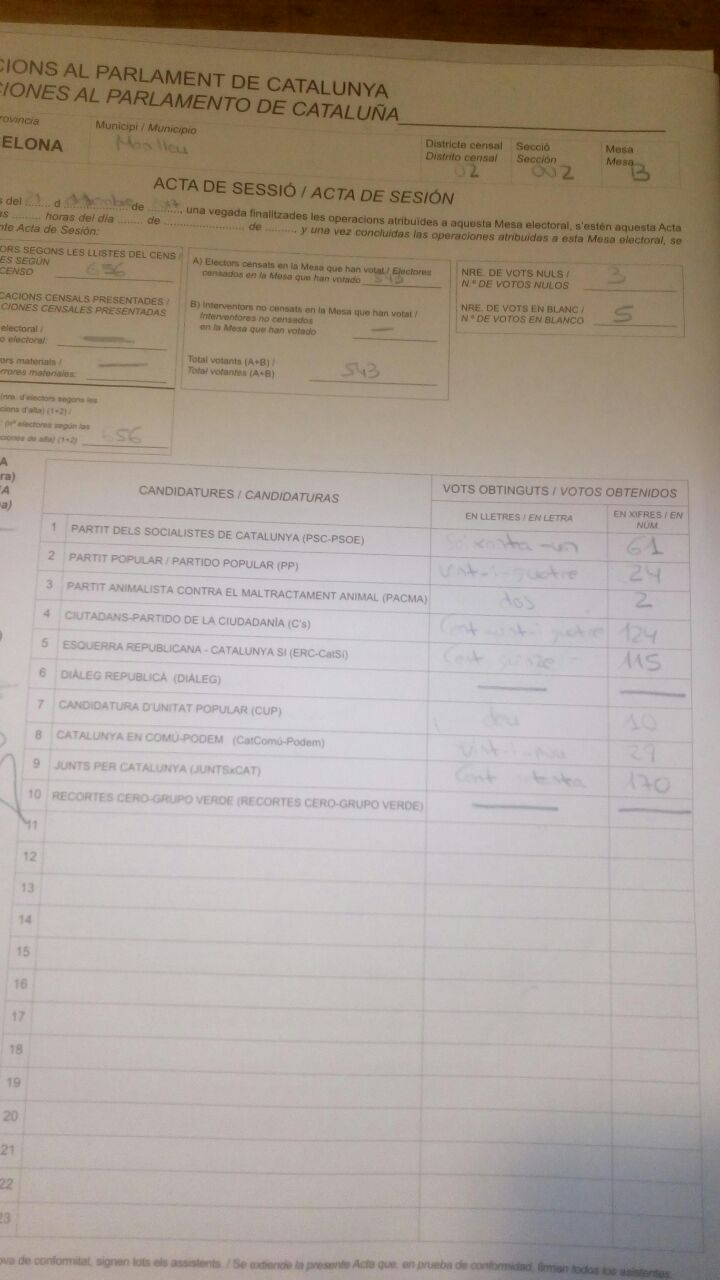 CIONS AL PARLAMENT DE CATALUNYA
CIONES AL PARLAMENTO DE CATALUÑA
rovíncia
ELONA
Municipi / Municipio
Manlleu
Districte censal
Distrito censal
02
Secció
Sección
002
Mesa
Mesa
B
ACTA DE SESSIÓ / ACTA DE SESIÓN
s del 21 d desembre de 17, una vegada finalitzades les operacions atribuïdes a aquesta Mesa electoral, s'estén aquesta Acta
as ......... horas del día ........ de ......................... de ........., y una vez concluidas las operaciones atribuidas a esta Mesa electoral, se
nte Acta de Sesión:
ORS SEGONS LES LLISTES DEL CENS /
ES SEGÚN
CENSO 656
CACIONS CENSALS PRESENTADES /
CIONES CENSALES PRESENTADAS
electoral /
o electoral: —
ors materials /
rrores materiales: —
(nre. d'electors segons les
cions d'alta) (1+2) /
: (nº electores según las
ciones de alta) (1+2) 656
A) Electors censats en la Mesa que han votat / Electores
censados en la Mesa que han votado 543
B) Interventors no censats en la Mesa que han votat /
Interventores no censados
en la Mesa que han votado —
Total votants (A+B) /
Total votantes (A+B) 543
NRE. DE VOTS NULS /
N.º DE VOTOS NULOS 3
NRE. DE VOTS EN BLANC /
N.º DE VOTOS EN BLANCO 5
A
ra)
IA
a)
CANDIDATURES / CANDIDATURAS
VOTS OBTINGUTS / VOTOS OBTENIDOS
EN LLETRES / EN LETRA
EN XIFRES / EN
NÚM.
1 PARTIT DELS SOCIALISTES DE CATALUNYA (PSC-PSOE) Seixanta-un 61
2 PARTIT POPULAR / PARTIDO POPULAR (PP) Vint-i-quatre 24
3 PARTIT ANIMALISTA CONTRA EL MALTRACTAMENT ANIMAL (PACMA) dos 2
4 CIUTADANS-PARTIDO DE LA CIUDADANÍA (C's) Cent vint-i-quatre 124
5 ESQUERRA REPUBLICANA - CATALUNYA SI (ERC-CatSí) Cent quinze - 115
6 DIÀLEG REPUBLICÀ (DIÀLEG) — —
7 CANDIDATURA D'UNITAT POPULAR (CUP) deu 10
8 CATALUNYA EN COMÚ-PODEM (CatComú-Podem) Vint-i-nou 29
9 JUNTS PER CATALUNYA (JUNTSxCAT) Cent setanta 170
10 RECORTES CERO-GRUPO VERDE (RECORTES CERO-GRUPO VERDE) — —
11
12
13
14
15
16
17
18
19
20
21
22
23
ova de conformitat, signen tots els assistents. / Se extiende la presente Acta que, en prueba de conformidad, firman todos los asistentes.